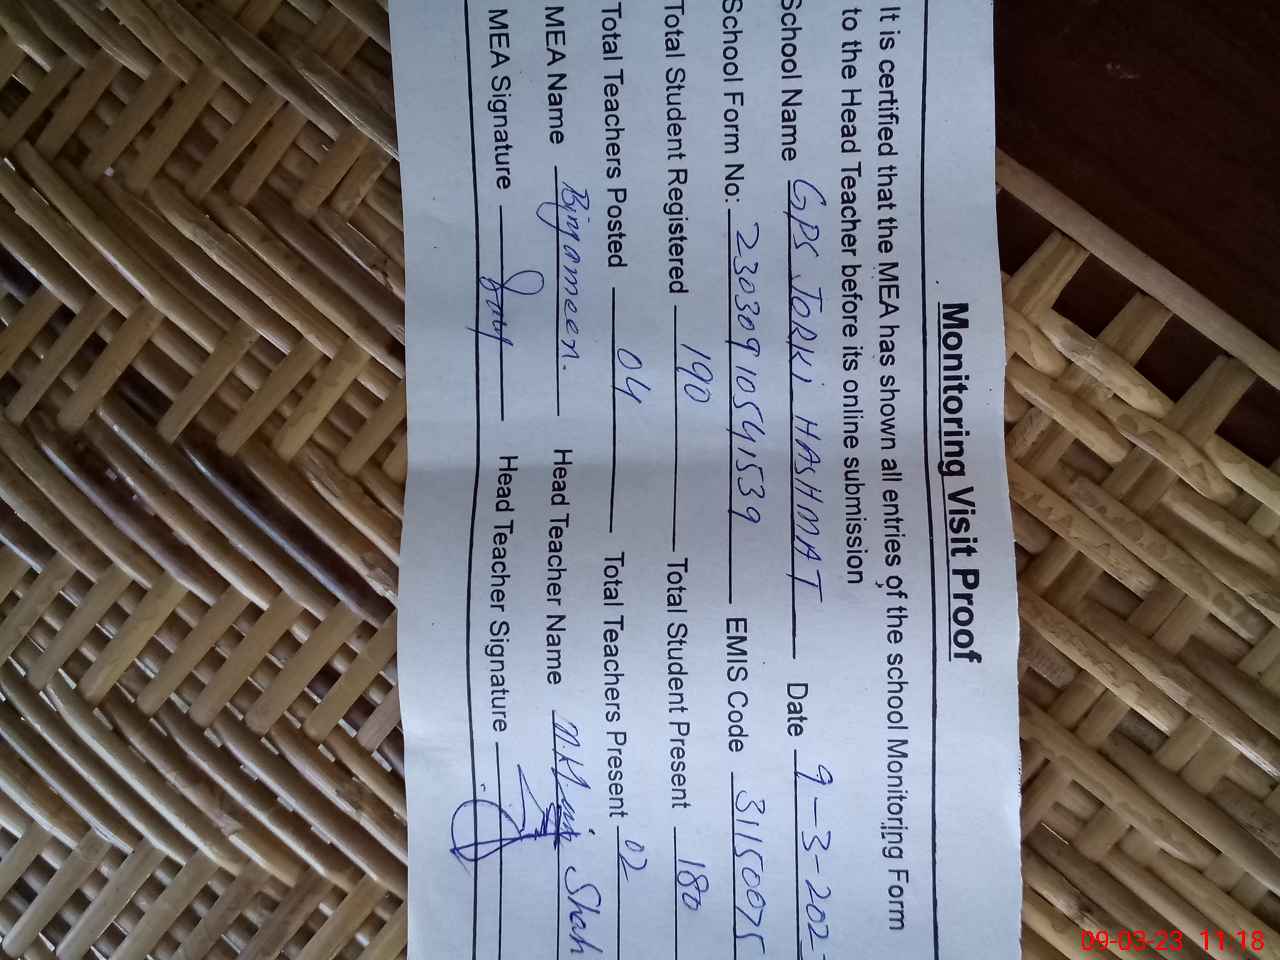 Monitoring Visit Proof
It is certified that the MEA has shown all entries of the school Monitoring Form
to the Head Teacher before its online submission
School Name GPS JORKi HASHMAT Date 9-3-202
School Form No: 23030910541539 EMIS Code 31150075
Total Student Registered 190 Total Student Present 180
Total Teachers Posted 04 Total Teachers Present 02
MEA Name Binyameen. Head Teacher Name Shah
MEA Signature Head Teacher Signature
09-03-23 11:18